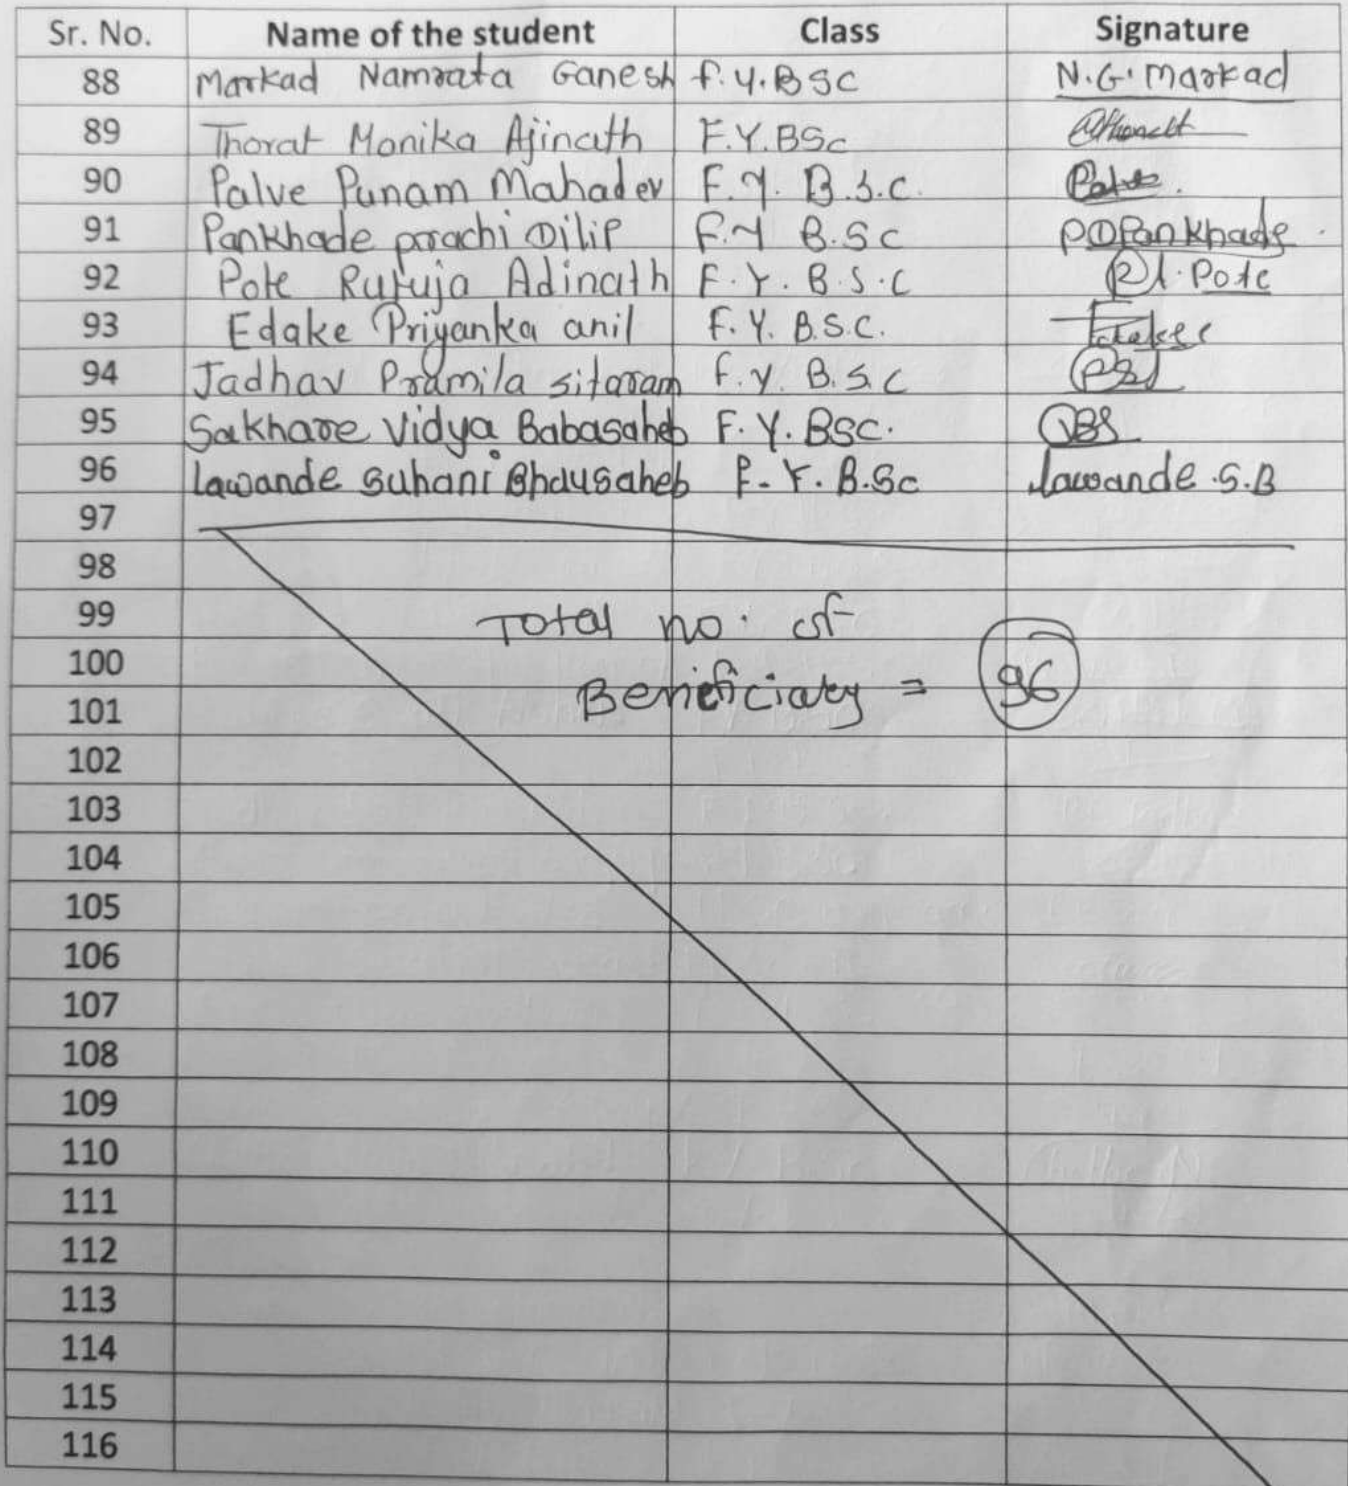 Sr. No. Name of the student Class Signature
88 Markad Namrata Ganesh f.y.BSC N.G. Markad
89 Thorat Monika Ajinath F.Y.BSc
90 Palve Punam Mahadev F.Y. B.S.C. Palve
91 Pankhade prachi Dilip F.Y B.Sc PDPankhade
92 Pote Rutuja Adinath F.Y.B.S.C Pote
93 Edake Priyanka anil F.Y. B.S.C.
94 Jadhav Pramila sitaram F.Y. B.S.C PSJ
95 Sakhare Vidya Babasaheb F.Y. BSC. VBS
96 Lawande Suhani Bhausaheb F.Y.B.Sc Lawande .S.B
97
98
99 Total no. of
100 96
101 Beneficiary =
102
103
104
105
106
107
108
109
110
111
112
113
114
115
116